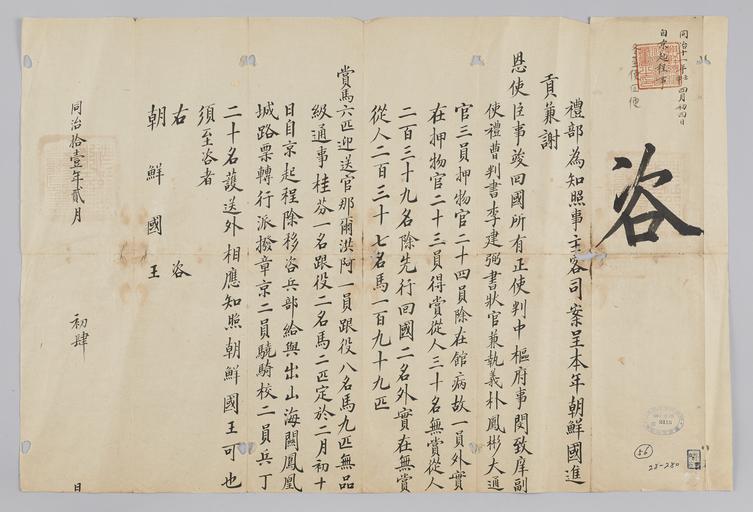 同治十一年壬申四月初四日
自京起程事
咨
禮部為知照事主客司案呈本年朝鮮國進
貢兼謝
恩使臣事竣回國所有正使判中樞府事閔致庠副
使禮曹判書李建弼書狀官兼執義朴鳳彬大通
官三員押物官二十四員除在館病故一員外實
在押物官二十三員得賞從人三十名無賞從人
二百三十九名除先行回國二名外實在無賞
從人二百三十七名馬一百九十九匹
賞馬六匹迎送官那爾洪阿一員跟役八名馬九匹無品
級通事桂芬一名跟役二名馬二匹定於二月初十
日自京起程除移咨兵部給與出山海關鳳凰
城路票轉行派撥章京二員驍騎校二員兵丁
二十名護送外相應知照朝鮮國王可也
須至咨者
右咨
朝鮮國王
同治拾壹年貳月初肆日
56
28-280